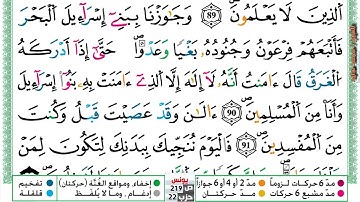 اَلذِينَ لَا يَعْلَمُونَ 89 وَجَٰوَزْنَا بِبَنِےٓ إِسْرَآءِيلَ اَلْبَحْرَ
فَأَتْبَعَهُمْ فِرْعَوْنُ وَجُنُودُهُۥ بَغْياً وَعَدْواً حَتَّىٰٓ إِذَآ أَدْرَكَهُ
اُلْغَرَقُ قَالَ ءَامَنتُ أَنَّهُۥ لَآ إِلَٰهَ إِلَّا اَلذِےٓ ءَامَنَتْ بِهِۦ بَنُوٓاْ إِسْرَآءِيلَ
وَأَنَا مِنَ اَلْمُسْلِمِينَ 90 ءَآلَٰنَ وَقَدْ عَصَيْتَ قَبْلُ وَكُنتَ
مِنَ اَلْمُفْسِدِينَ 91 فَالْيَوْمَ نُنَجِّيكَ بِبَدَنِكَ لِتَكُونَ لِمَنْ
مدّ 6 حركات لزوماً مدّ 2 أو 4 أو 6 جوازاً
مدّ مشبع 6 حركات مدّ حركتان
يونس
219
حزب 22
إخفاء، ومواقع الغُنَّة (حركتان) تفخيم
إدغام، وما لا يُلفَظ قلقلة